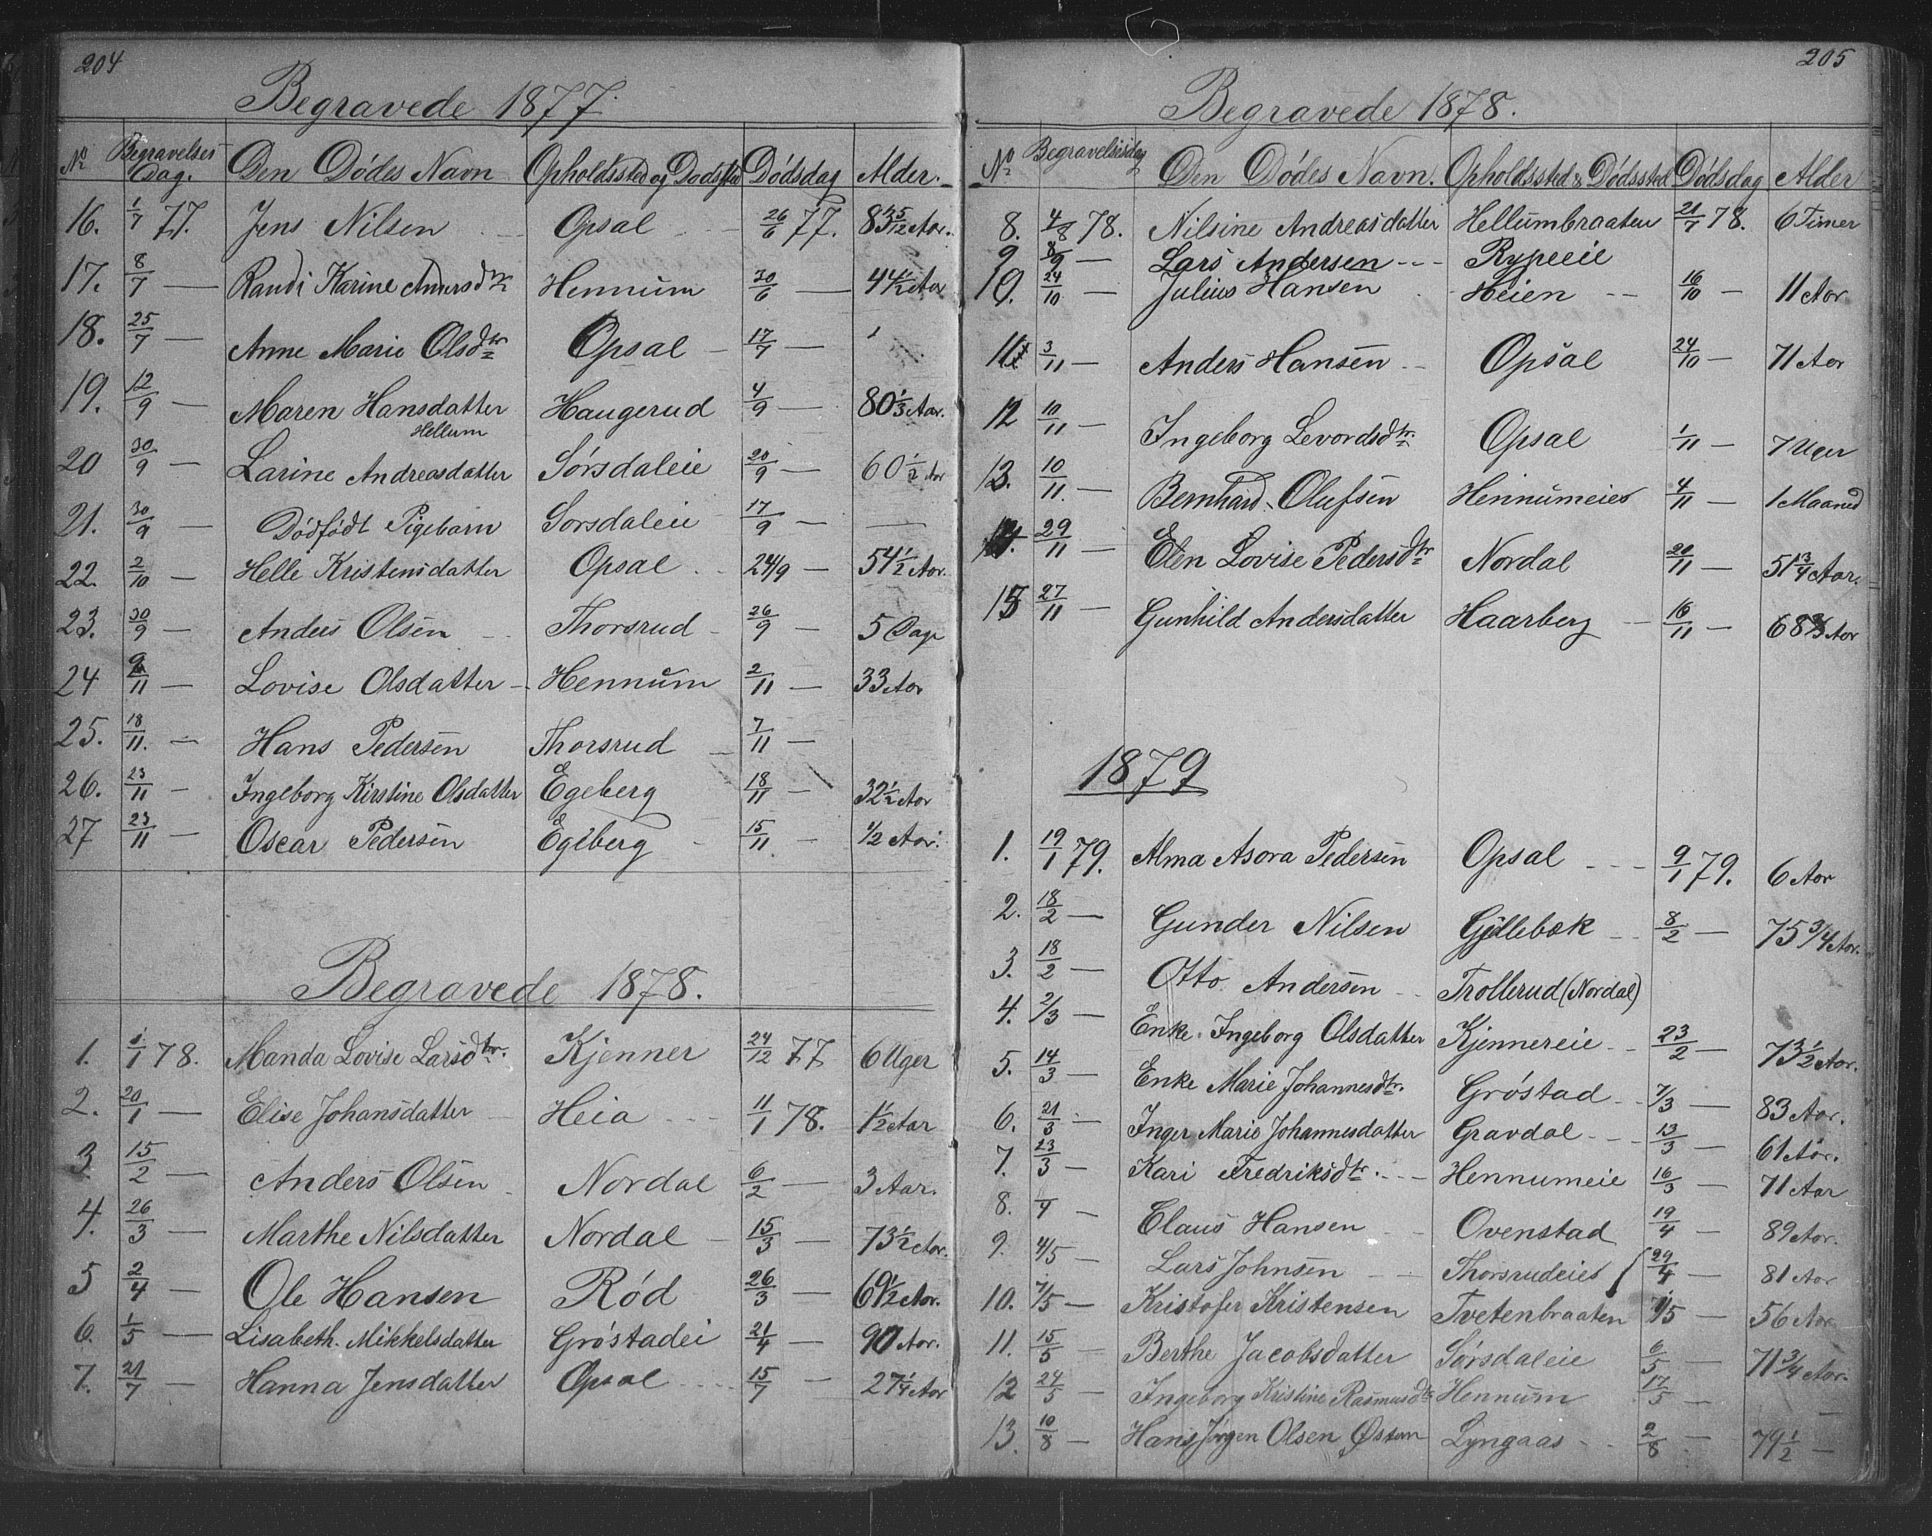 204
Begravede 1877.
No Begravelses Dag. Den Dødes Navn Opholdssted og Dødssted Dødsdag Alder.
16. 1/7 77. Jens Nilsen Opsal 26/6 77. 83 5/12 Aar.
17. 8/7 — Randi Karine Andersdtr Hennum 30/6 — 44 1/2 Aar
18. 25/7 — Anne Marie Olsdtr Opsal — 17/7 —
19. 12/9 — Maren Hansdatter Haugerud 4/9 — 80 1/3 Aar.
Hellum
20 30/9 — Larine Andreasdatter Sørsdaleie 20/9 — 60 1/2 Aar
21. 30/9 — Dødfødt Pigebarn Sorsdaleie 17/9 — —
22. 2/10 — Helle Kristensdatter Opsal 24/9 — 54 1/2 Aar.
23. 30/9 — Anders Olsen Thorsrud 26/9 — 5 Dage
24 /11 — Lovise Olsdatter Hennum 2/11 — 33 Aar
25. 18/11. — Hans Pedersen Thorsrud 7/11 —
26. 23/11 — Ingeborg Kirstine Olsdatter Egeberg 18/11 — 32 1/2 Aar
27 23/11 — Oscar Pedersen Egeberg 15/11. — 1/2 Aar.
Begravede 1878.
1. 1/1 78. Manda Lovise Larsdtr. Kjenner 24/12 77 6 Uger
2. 20/1 — Elise Johansdatter Heia 11/1 78. 1 1/2 Aar
3. 15/2 — Anders Olsen Nordal 6/2 — 3 Aar.
4. 26/3 — Marthe Nilsdatter Nordal — 15/3 — 73 1/2 Aar.
5 2/4 — Ole Hansen Ród 26/3 — 69 1/2 Aar.
6. 1/5 — Lisabeth Mikkelsdatter Gróstadei 21/4 — 90 Aar.
7. 21/7 — Hanna Jensdatter Opsal 15/7 — 27 1/4 Aar
205
Begravede 1878.
No Begravelsesdag Den Dødes Navn. Opholdssted & Dødssted Dødsdag Alder
8. 4/8 78. Nilsine Andreasdatter Hellumbraaten 21/7 78. 6 Timer
9 8/9 — Lars Andersen Rypeeie
10. 24/10 — Julius Hansen Heien 16/10 — 11 Aar
11 3/11 — Anders Hansen Opsal 24/10 — 71 Aar
12 10/11 — Ingeborg Levordsdtr. Opsal 1/11 — 7 Uger
13. 10/11. — Bernhard Olufsen Hennumeies 4/11 — 1 Maaned
14. 29/11 — Elen Lovise Pedersdtr Nordal 20/11 — 51 3/4 Aar.
15 27/11 — Gunhild Andersdatter Haarberg 16/11 — 68 Aar
1879
1. 19/1 79. Alma Asora Pedersen Opsal 9/1 79. 6 Aar
2. 18/2 — Gunder Nilsen Gjellebæk 8/2 — 75 3/4 Aar.
3. 18/2 — Otto Andersen Trollerud (Nordal)
4. 2/3 — Enke Ingeborg Olsdatter Kjennereie 23/2 — 73 1/2 Aar.
5. 14/3 — Enke Marie Johannesdtr. Gróstad 7/3 — 83 Aar.
6. 21/3 — Inger Marie Johannesdatter Gravdal 13/3 — 61 Aar.
7. 23/3 — Kari Fredriksdtr. Hennumeie 16/3 — 71 Aar
8. /4 — Claus Hansen Ovenstad 19/4 — 89 Aar.
9. 4/5 — Lars Johnsen Thorsrudeies 29/4 — 81 Aar
10. 7/5 — Kristofer Kristensen Tvetenbraaten 1/5 — 56 Aar
11. 15/5 — Berthe Jacobsdatter Sórsdaleie 6/5 — 71 3/4 Aar.
12 24/5 — Ingeborg Kristine Rasmusdtr Hennum 17/5 — —
13. 10/8 — Hans Jørgen Olsen Østern Lyngaas 2/8 — 79 1/2 —